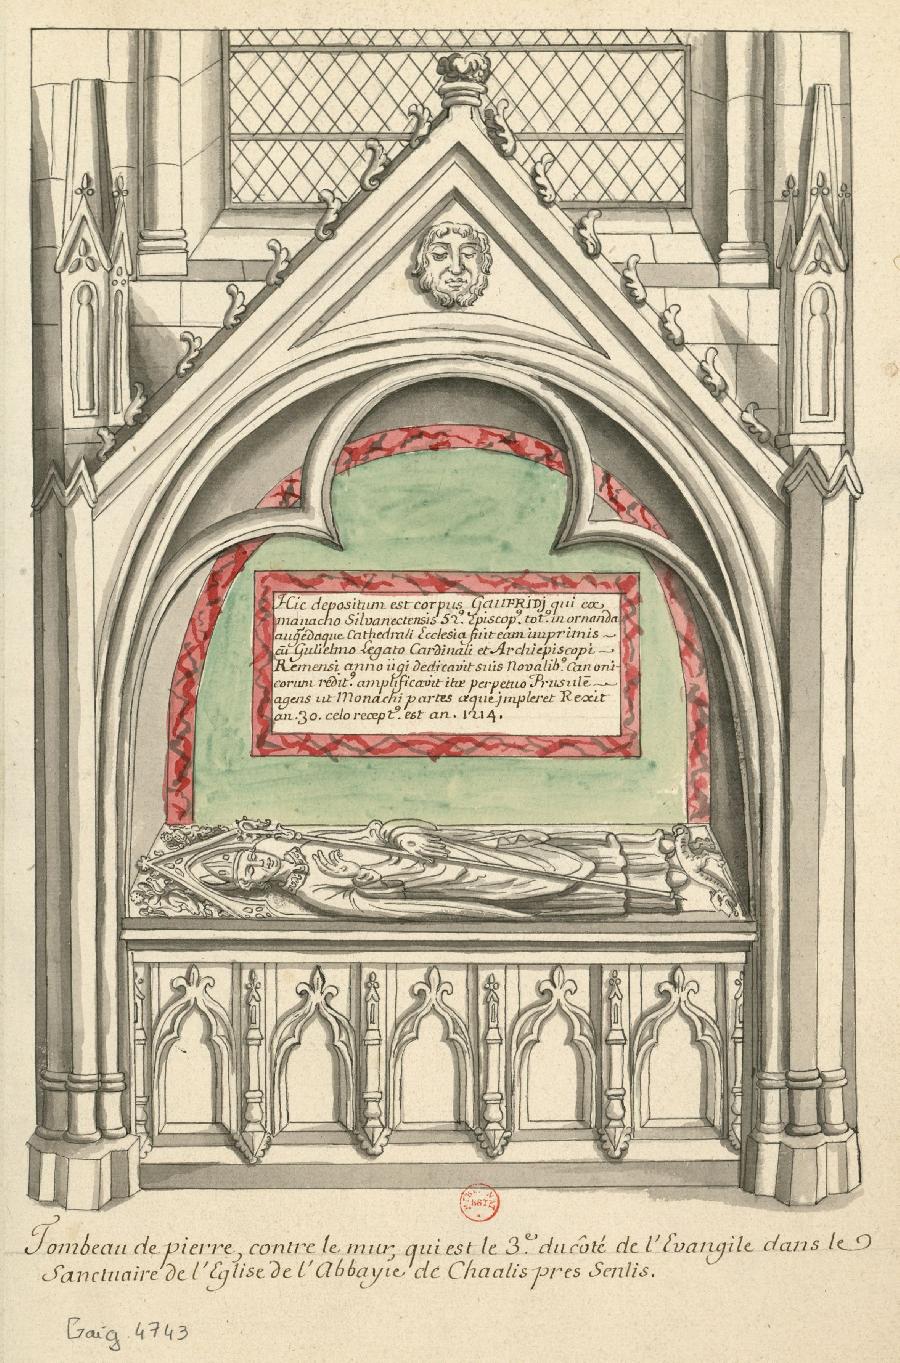 Hic depositum est corpus GAUFRIDj qui ex
manacho Silvanectensis 52.º Episcop.º tot.º in ornanda
augēdaque Cathedrali Ecclesia fuit eam imprimis
cū Gulielmo Legato Cardinali et Archiepiscopi
Remensi anno iigi dedicavit suis Novalib.º Canoni-
corum rēdit.º amplificavit itæ perpetuo Prusulē
agens ut Monachi partes æque jmpleret Rexit
an. 30. celo recept.º est an. 1214.
Tombeau de pierre, contre le mur, qui est le 3.e du côté de l'Evangile dans le
Sanctuaire de l'Eglise de l'Abbayie de Chaalis pres Senlis.
Gaig 4743